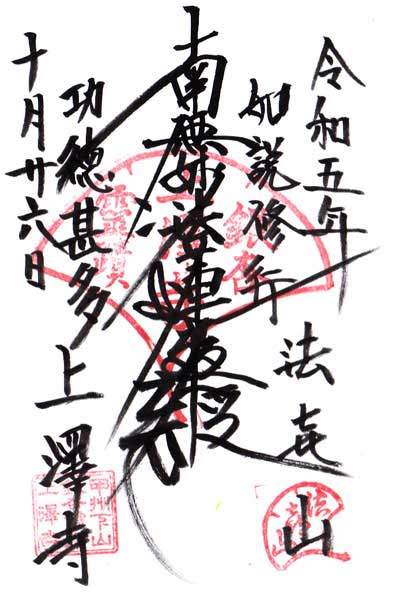 令和五年
法㐂山
如説修行
南無妙法蓮華経
功徳甚多
上澤寺
十月廿六日
霊蹟
甲州下山
上澤寺